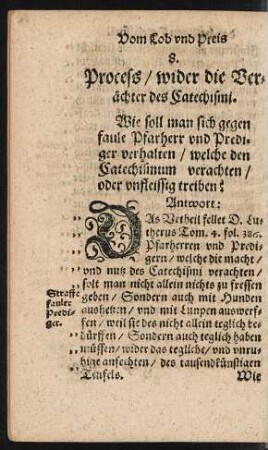 Vom Lob vnd Preis
8.
Process / wider die Ver-
ächter des Catechismi.
Wie soll man sich gegen
faule Pfarherr vnd Predi-
ger verhalten / welche den
Catechismum verachten /
oder vnfleissig treiben?
Antwort:
DAs Vrtheil fellet D. Lu-
therus Tom. 4. fol. 386.
Pfarherren vnd Predi-
gern / welche die macht /
vnd nutz des Catechismi verachten /
solt man nicht allein nichts zu fressen
geben / Sondern auch mit Hunden
aushetzen / vnd mit Lunpen auswerf-
fen / weil sie des nicht allein teglich be-
dürffen / Sondern auch teglich haben
müssen / wider das tegliche / vnd vnru-
hige anfechten / des tausendkünstigen
Teufels.
Wie
Straffe
fauler
Predi-
ger.